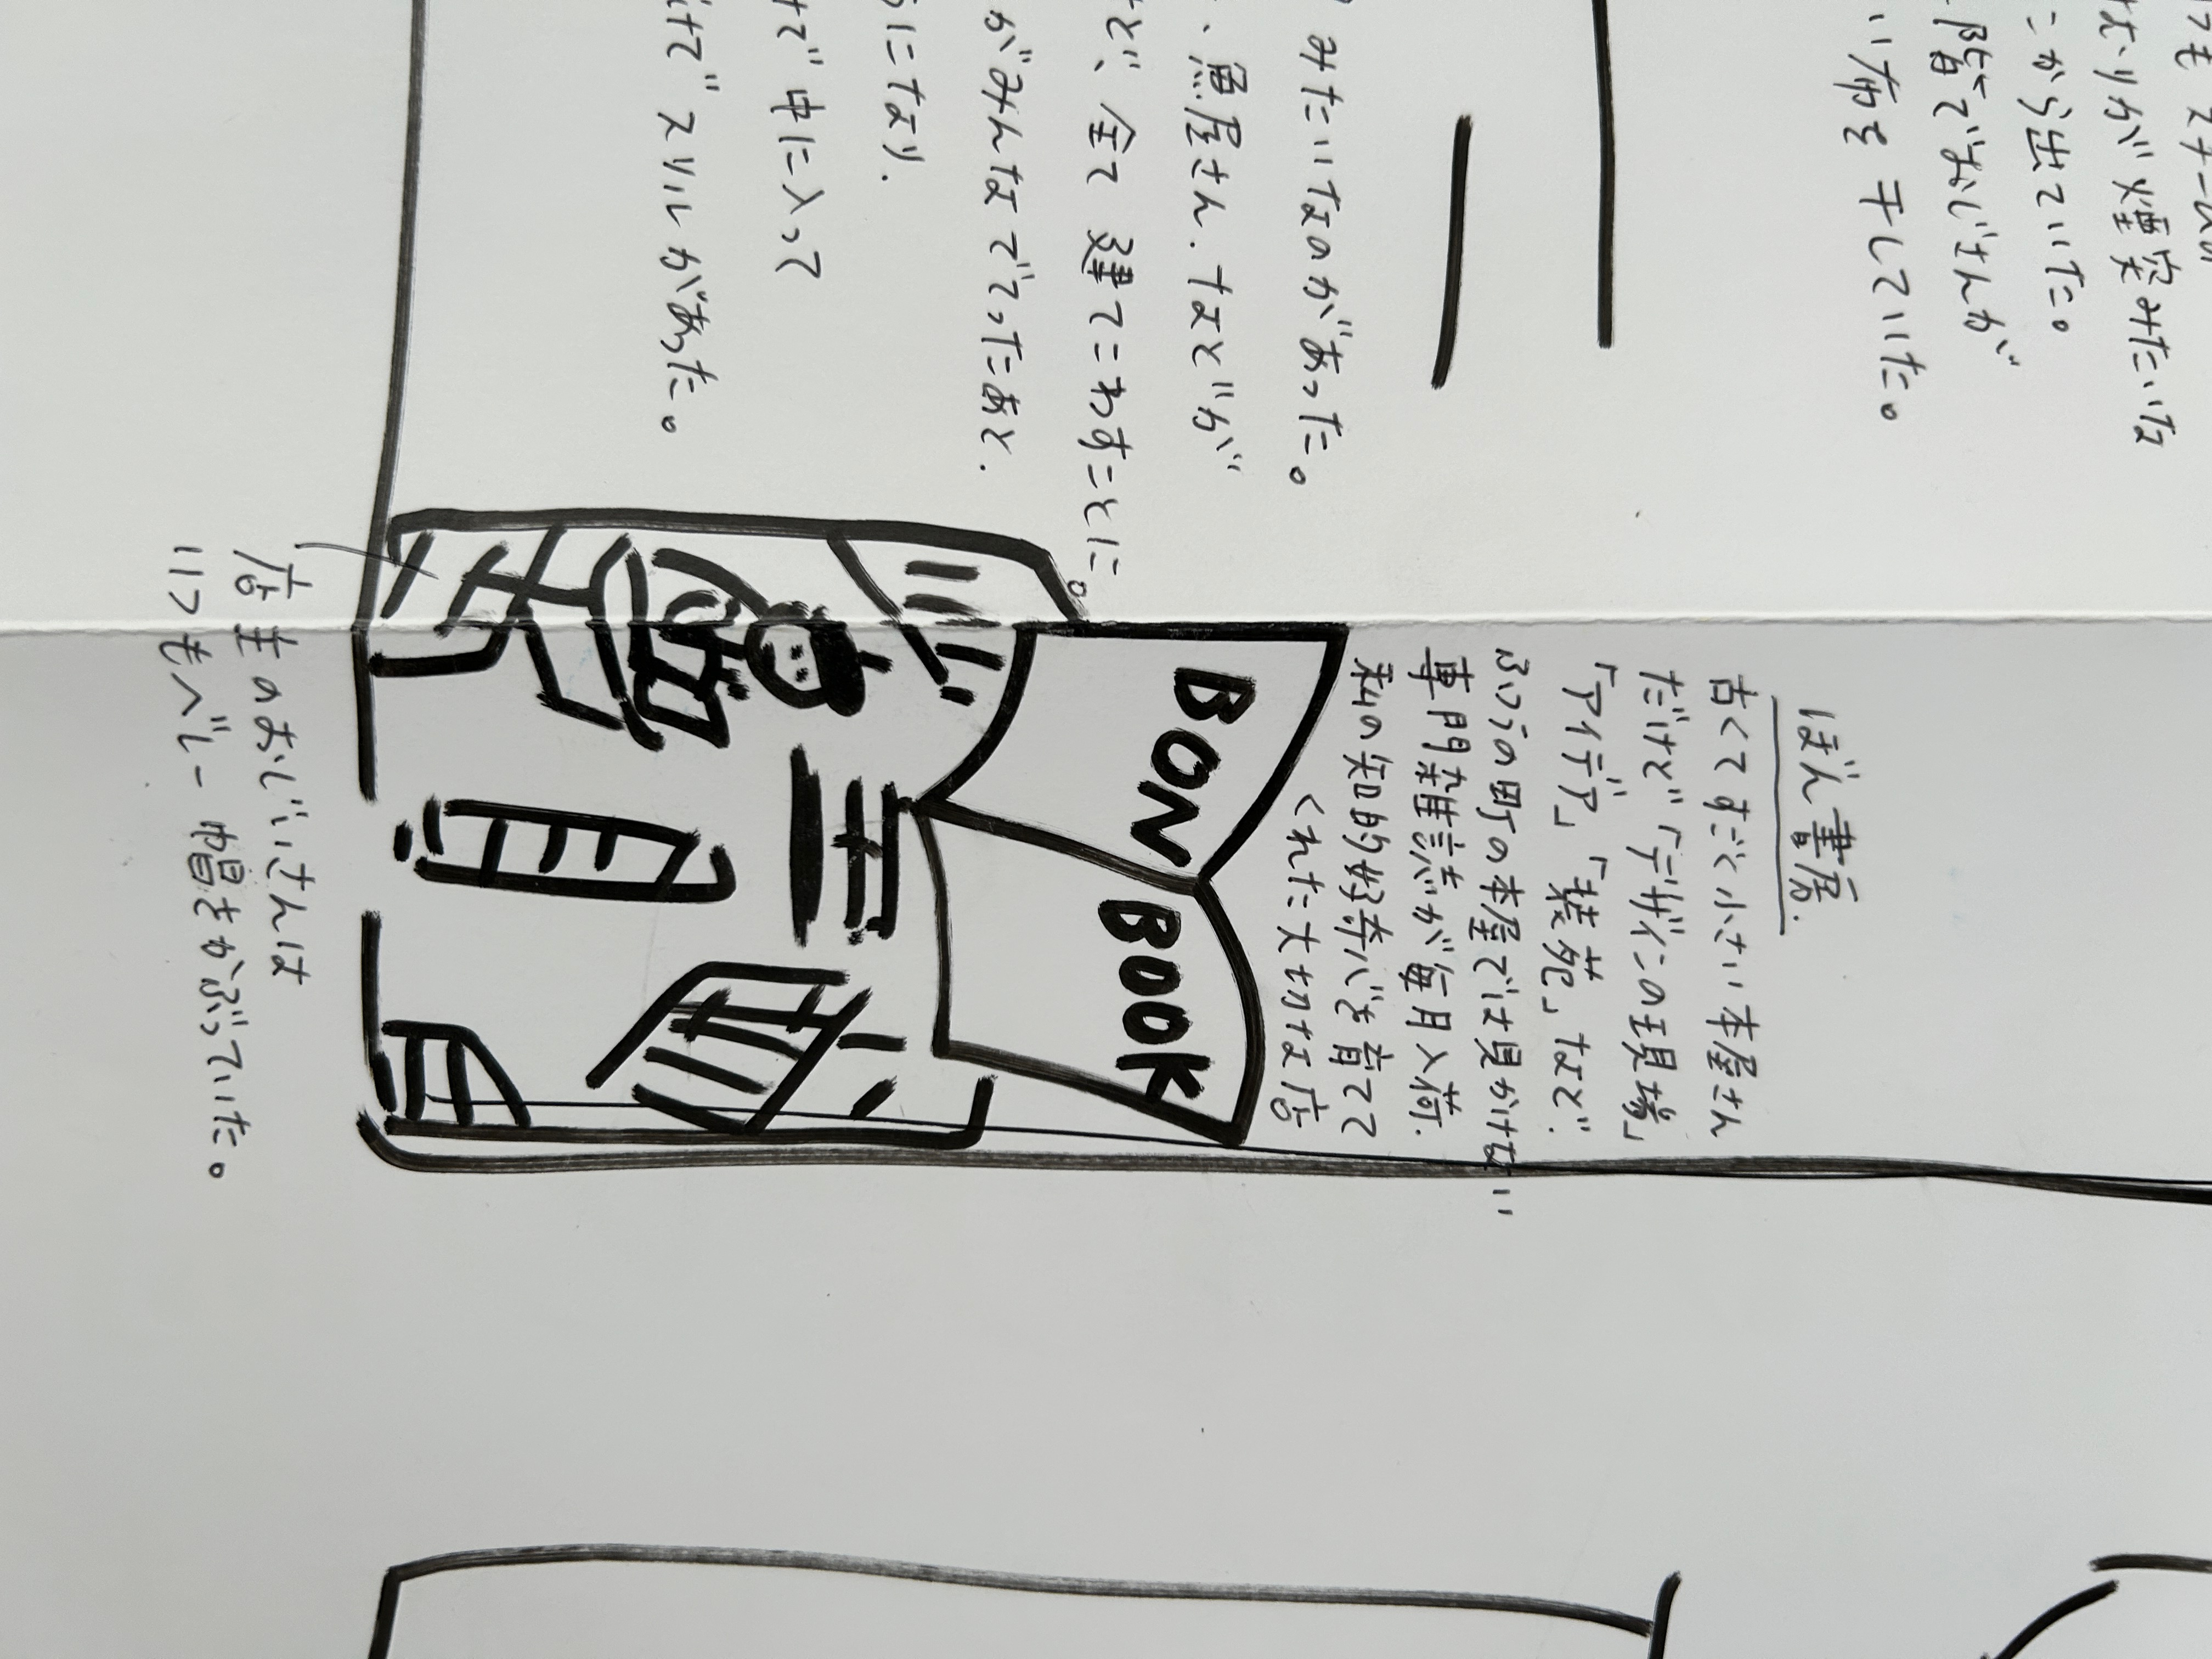 こから出ていた。
階でおじさんが
い布を干していた。
みたいなのがあった。
、魚屋さん.などが
ど、全て建てこわすことに
がみんなでてったあと.
になり.
で中に入って
けでスリルがあった。
ぼん書房.
古くてすごく小さい本屋さん
だけど「デザインの現場」
「アイデア」「装苑」など.
ふつうの町の本屋では見かけない
専門雑誌が毎月入荷.
私の知的好奇心を育てて
くれた大切な店
BON BOOK
店主のおじいさんは
いつもベレー帽をかぶっていた。